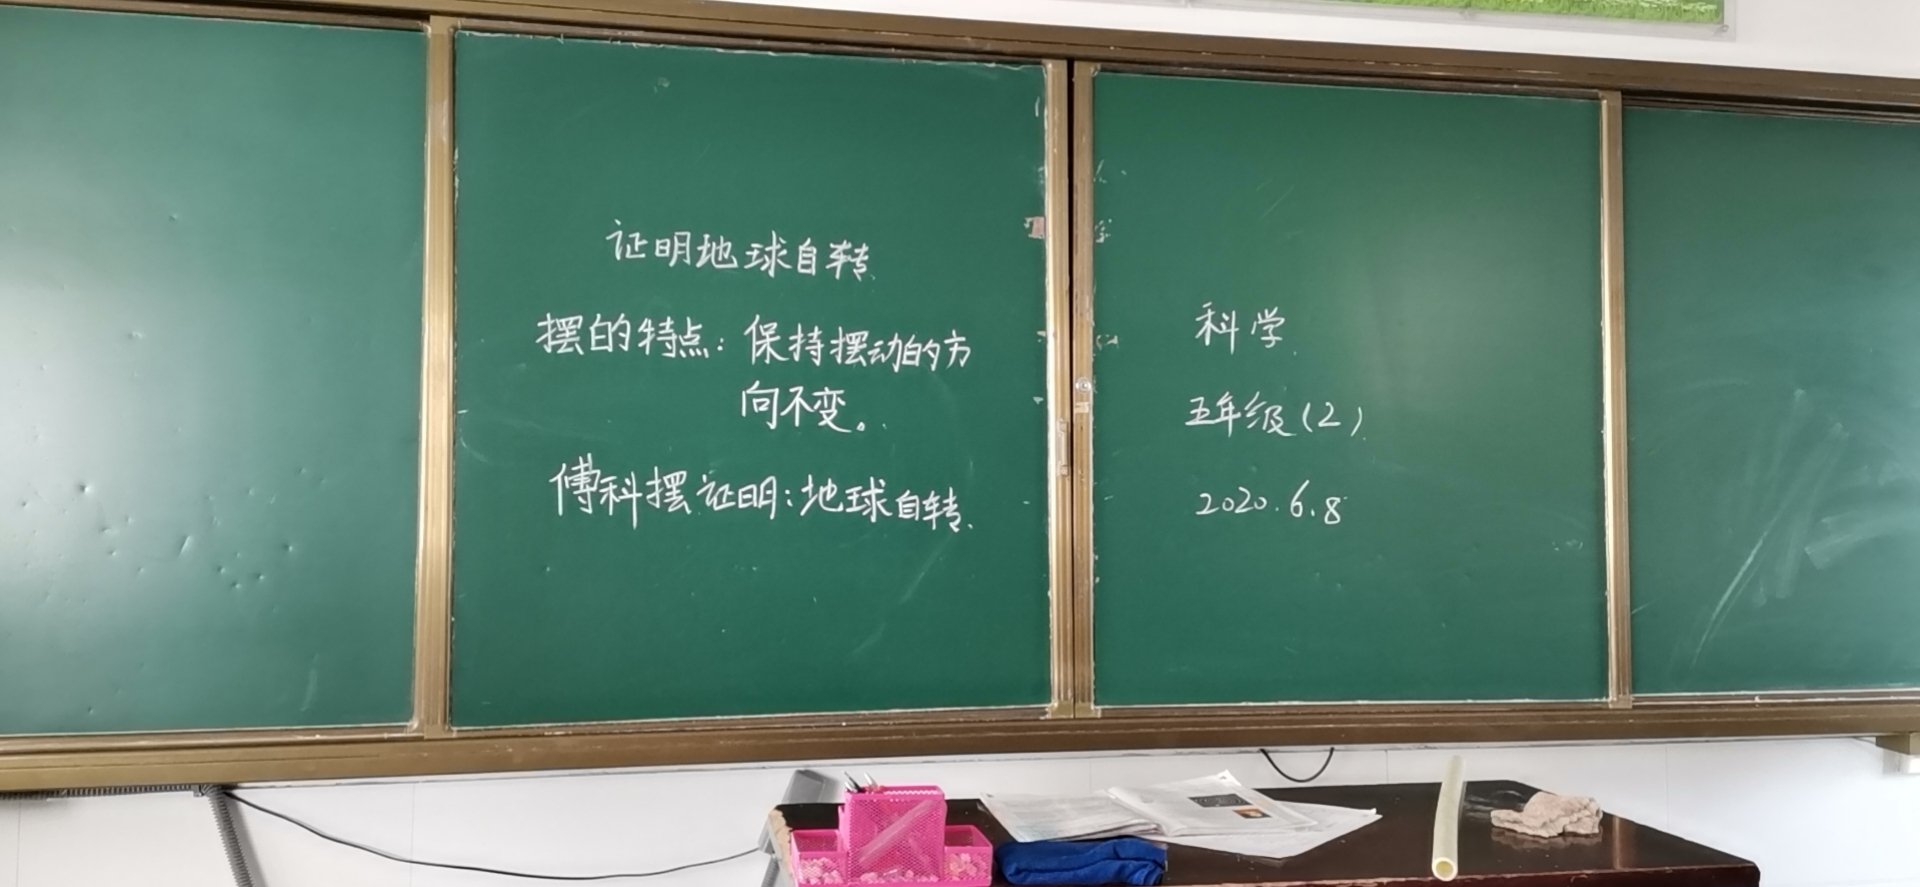 证明地球自转
摆的特点：保持摆动的方
向不变。
傅科摆证明：地球自转.
科学
五年级（2）
2020.6.8